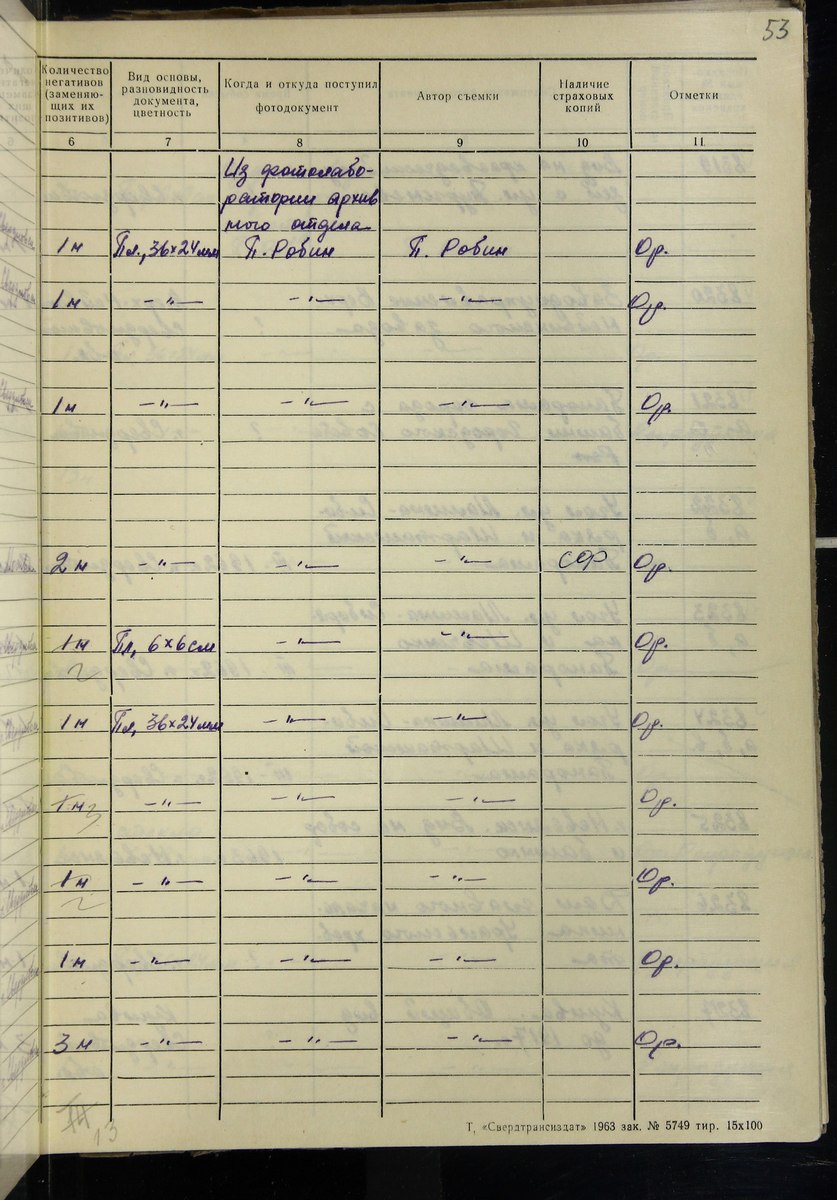 53
Количество негативов (заменяю- щих их позитивов) Вид основы, разновидность документа, цветность Когда и откуда поступил фотодокумент Автор съемки Наличие страховых копий Отметки
6 7 8 9 10 11
Из фотолабо-
ратории архив
ного отдела
1н Пл., 36×24мм П. Робин П. Робин Ор.
1н —"— —"— —"— Ор.
1н —"— —"— —"— Ор.
2н —"— —"— —"— СФ Ор.
1н Пл, 6×6см —"— —"— Ор.
2
1н Пл, 36×24мм —"— —"— Ор.
1н 3 —"— —"— —"— Ор.
1н —"— —"— —"— Ор.
2
1н —"— —"— —"— Ор.
3н —"— —"— —"— Ор.
13
Т. «Свердтрансиздат» 1963 зак. № 5749 тир. 15х100